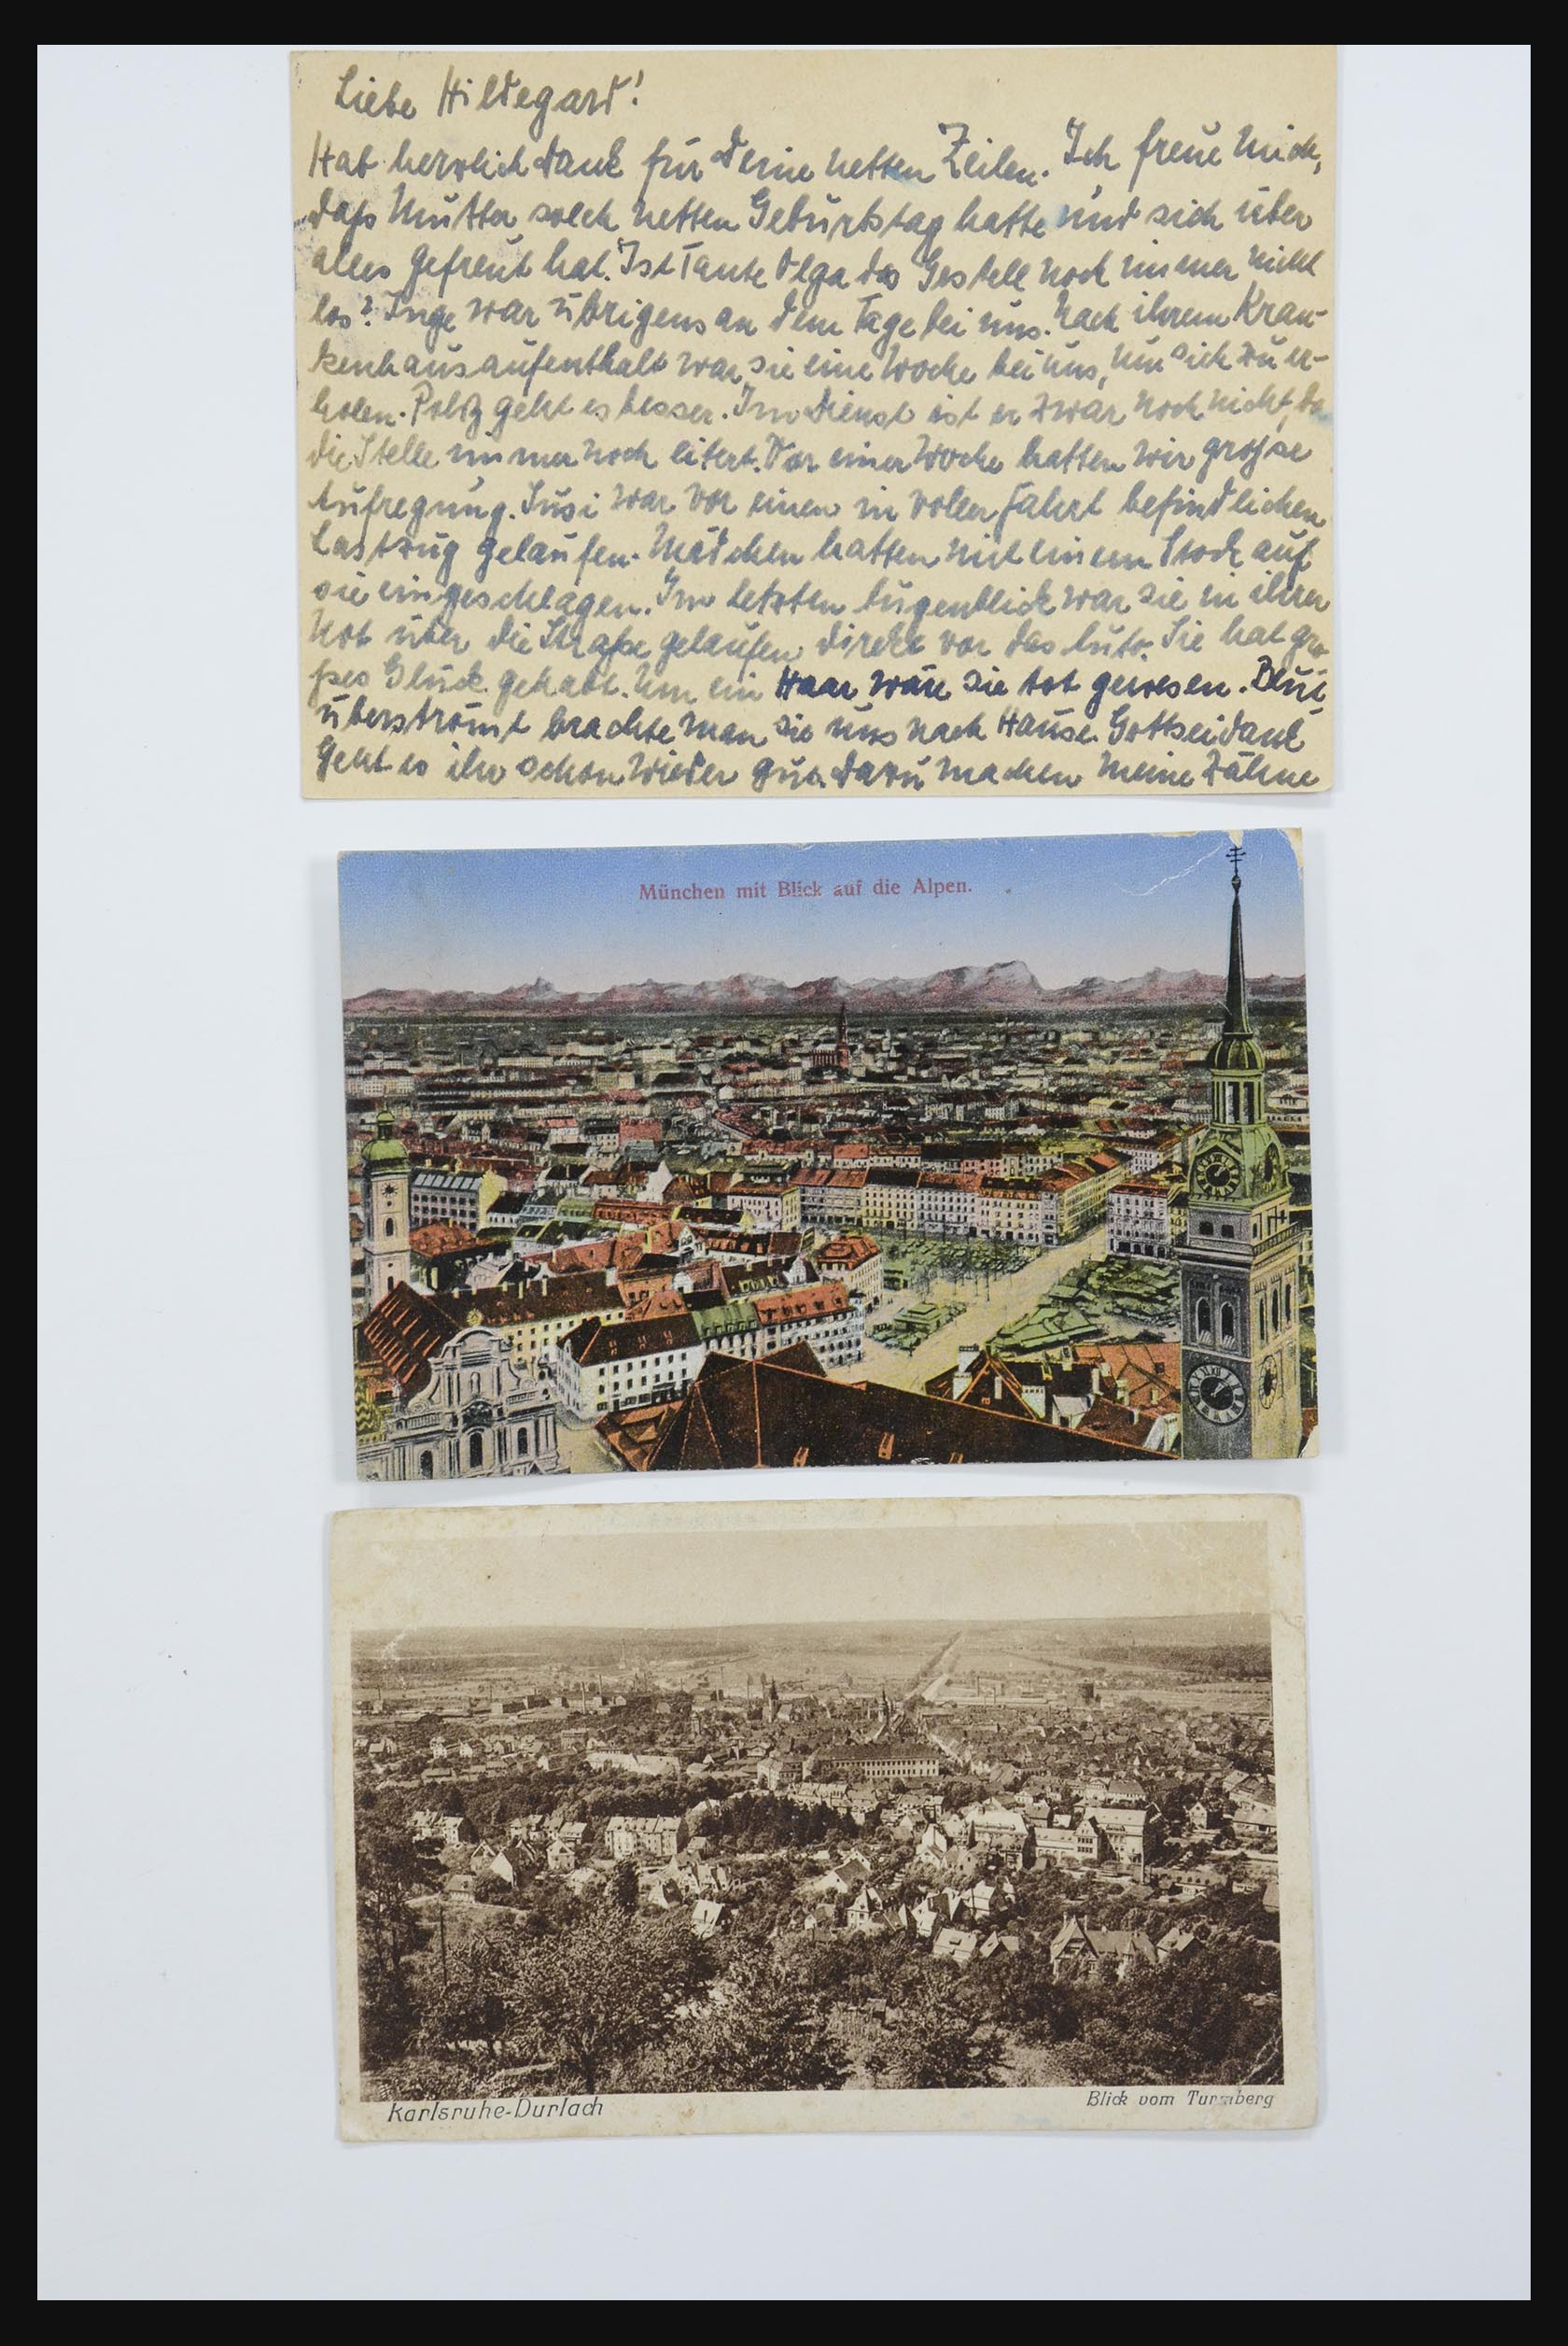 Liebe Hildegard!
Hab herzlich dank für deine netten Zeilen. Ich freue mich,
daß Mutter solch netten Geburtstag hatte und sich über
alles gefreut hat. Ist Tante Olga das Gestell noch immer nicht
los? Inge war übrigens an dem Tage bei uns. Nach ihrem Kran-
kenhausaufenthalt war sie eine Woche bei uns, um sich zu er-
holen. geht es besser. Im Dienst ist er zwar noch nicht, da
die Stelle immer noch Vor einer Woche hatten wir große
Aufregung. Susi war vor einen in voller Fahrt befindlichen
Lastzug gelaufen. Mädchen hatten mit einem Stock auf
sie eingeschlagen. Im letzten Augenblick war sie in ihrer
Not über die Straße gelaufen direkt vor das Auto. Sie hat gro-
ßes Glück gehabt. Um ein Haar wäre sie tot gewesen. Blut
überströmt brachte man sie uns nach Hause. Gottseidank
geht es ihr schon wieder gut. Dazu machen meine Zähne
München mit Blick auf die Alpen.
Karlsruhe-Durlach
Blick vom Turmberg